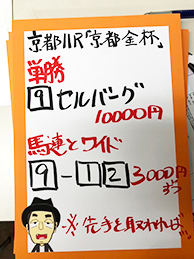 京都11R「京都金杯」
単勝
9 セルバーグ
10000円
馬連とワイド
9-12 3000円
ずつ
※先手を取れれば!!